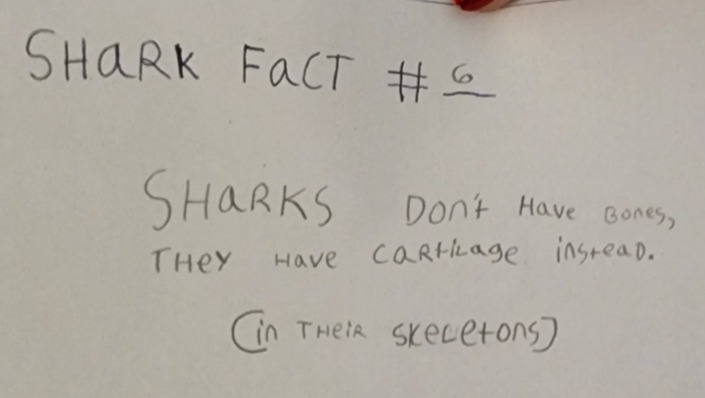 SHARK FACT # 6
SHARKS DON'T HAVE BONES,
THEY HAVE CARTILAGE INSTEAD.
(IN THEIR SKELETONS)